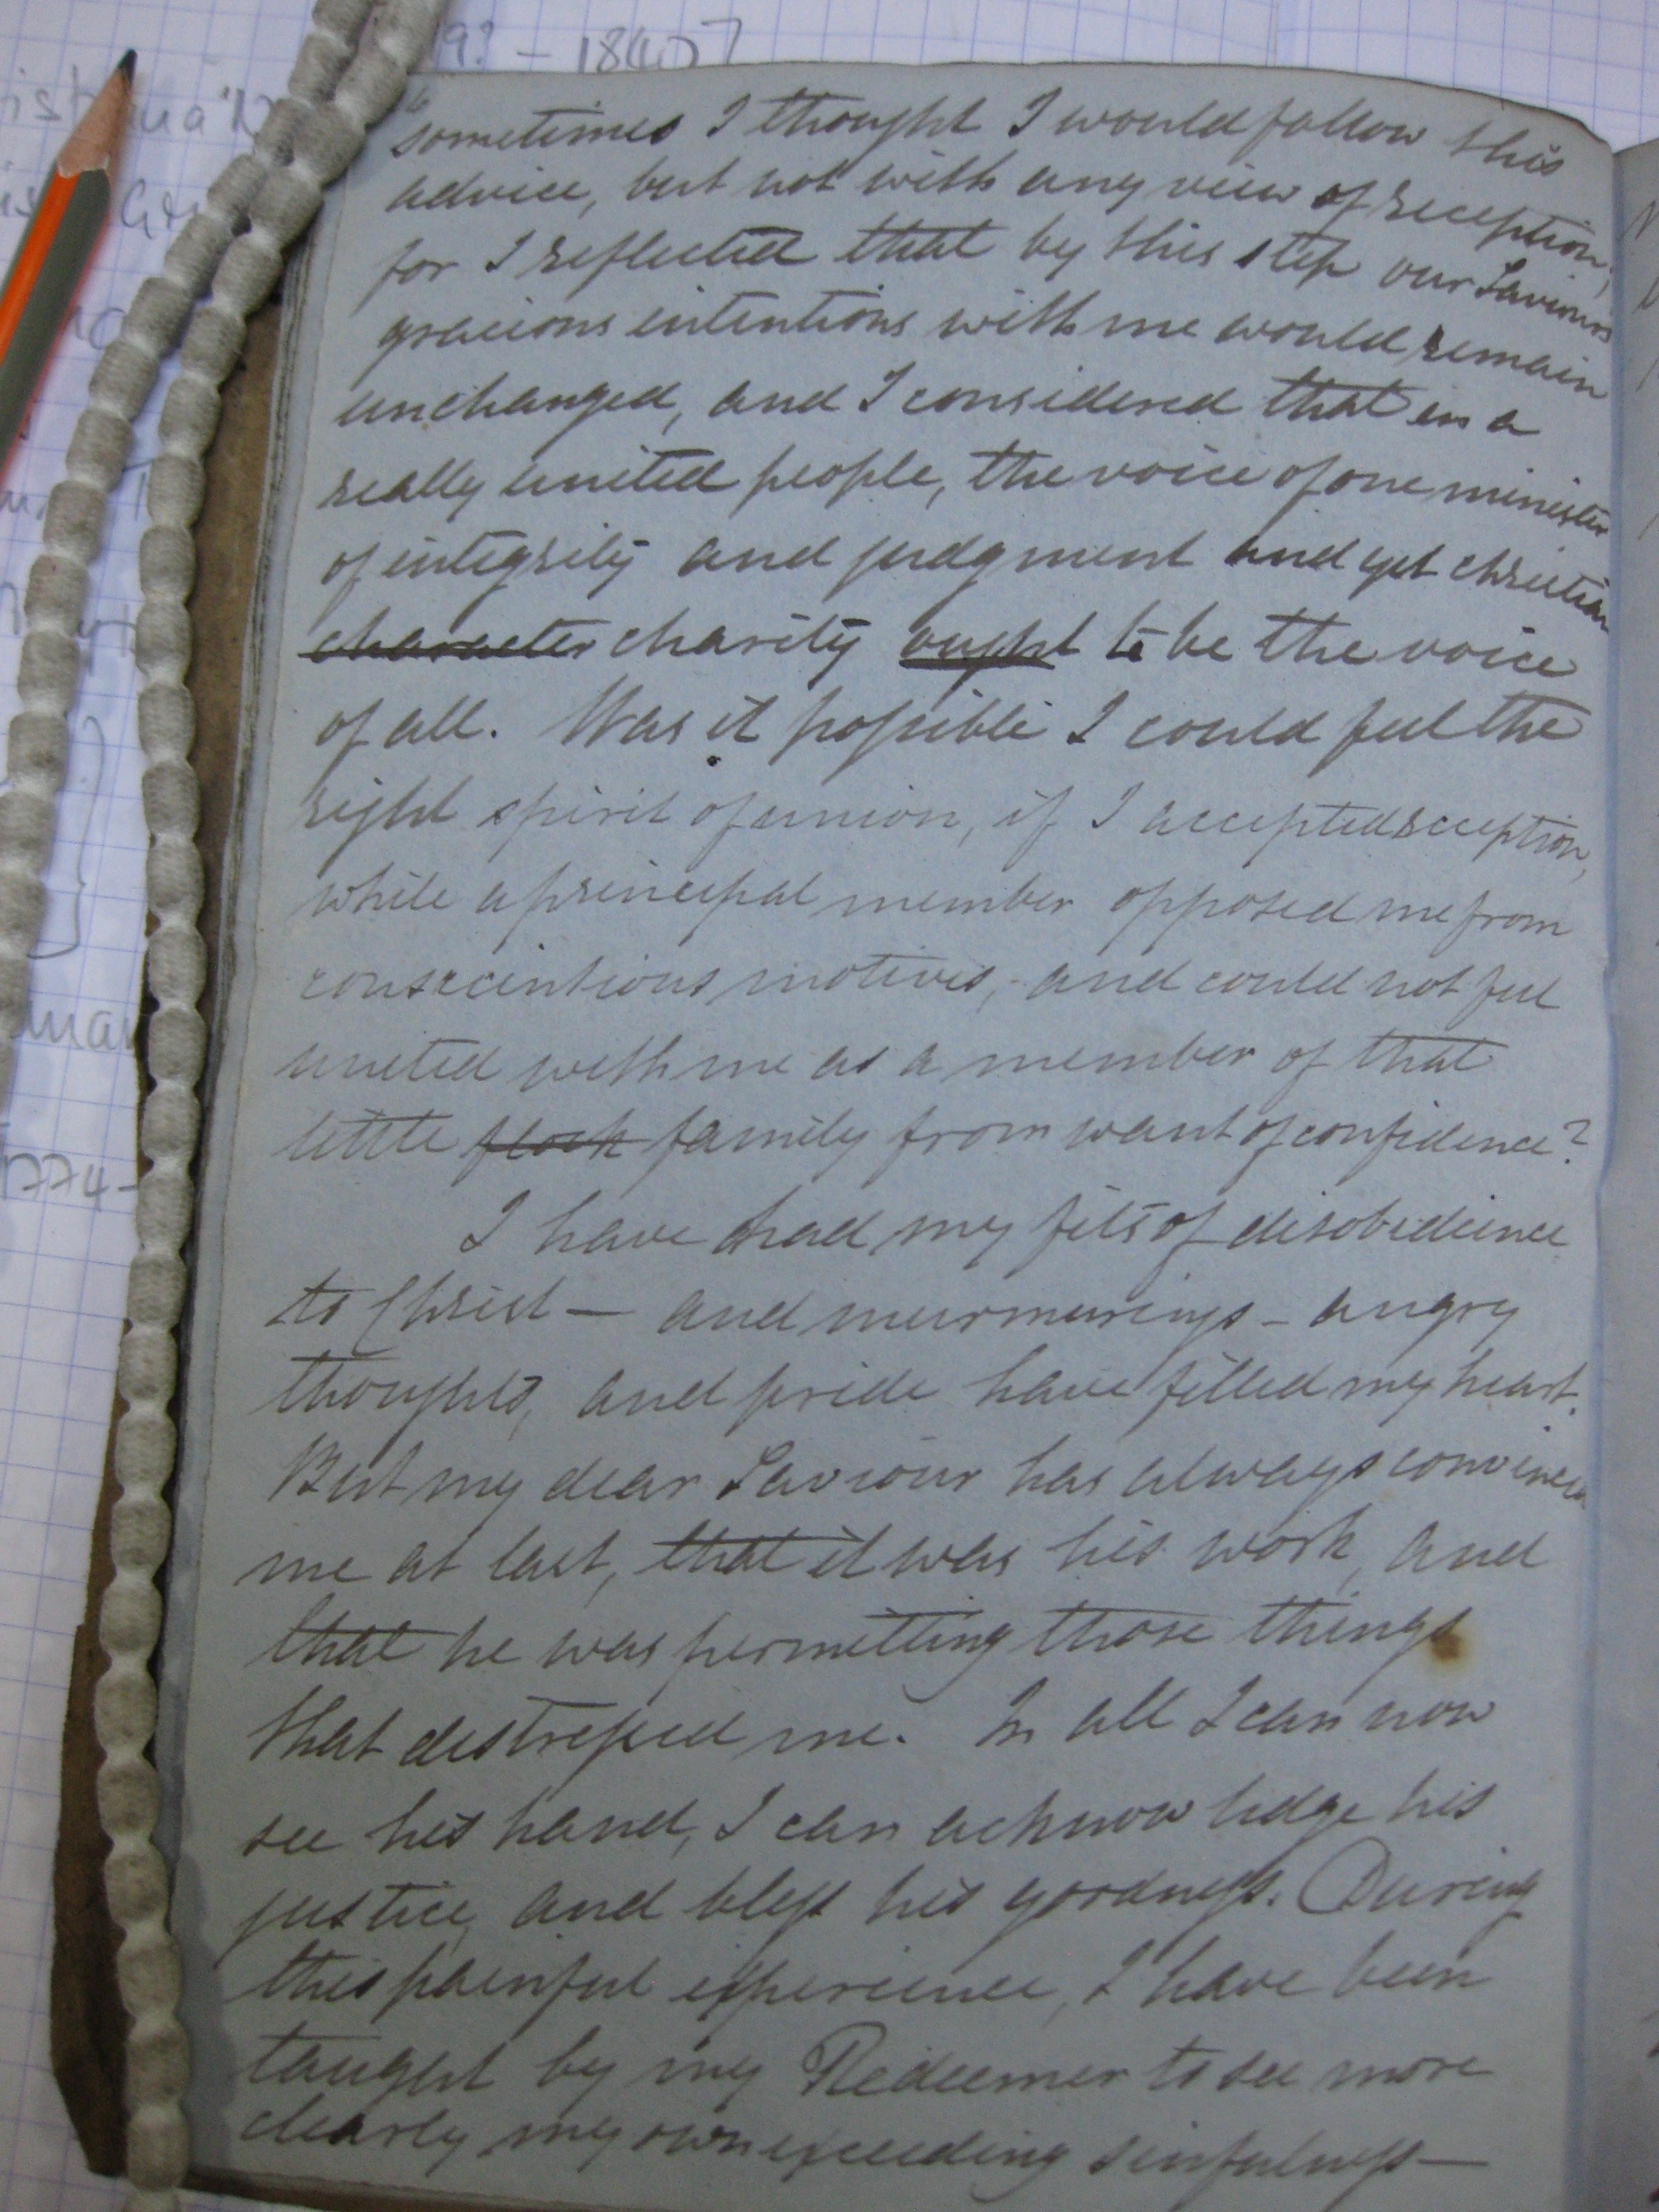 9? – 1840?
6
sometimes I thought I would follow this
advice, but not with any view of reception,
for I reflected that by this step our Saviours
gracious intentions with me would remain
unchanged, and I considered that in a
really united people, the voice of one minister
of integrity and judgment and yet christian
character charity ought to be the voice
of all. Was it possible I could feel the
right spirit of union, if I accepted reception,
while a principal member opposed me from
conscientious motives, and could not feel
united with me as a member of that
little flock family from want of confidence?
I have had my fits of disobedience
to Christ — and murmurings – angry
thoughts, and pride have filled my heart.
But my dear Saviour has always convinced
me at last, that it was his work, and
that he was permitting those things
that distressed me. In all I can now
see his hand, I can acknowledge his
justice, and bless his goodness. During
this painful experience, I have been
taught by my Redeemer to see more
clearly my own exceeding sinfulness —
1774-